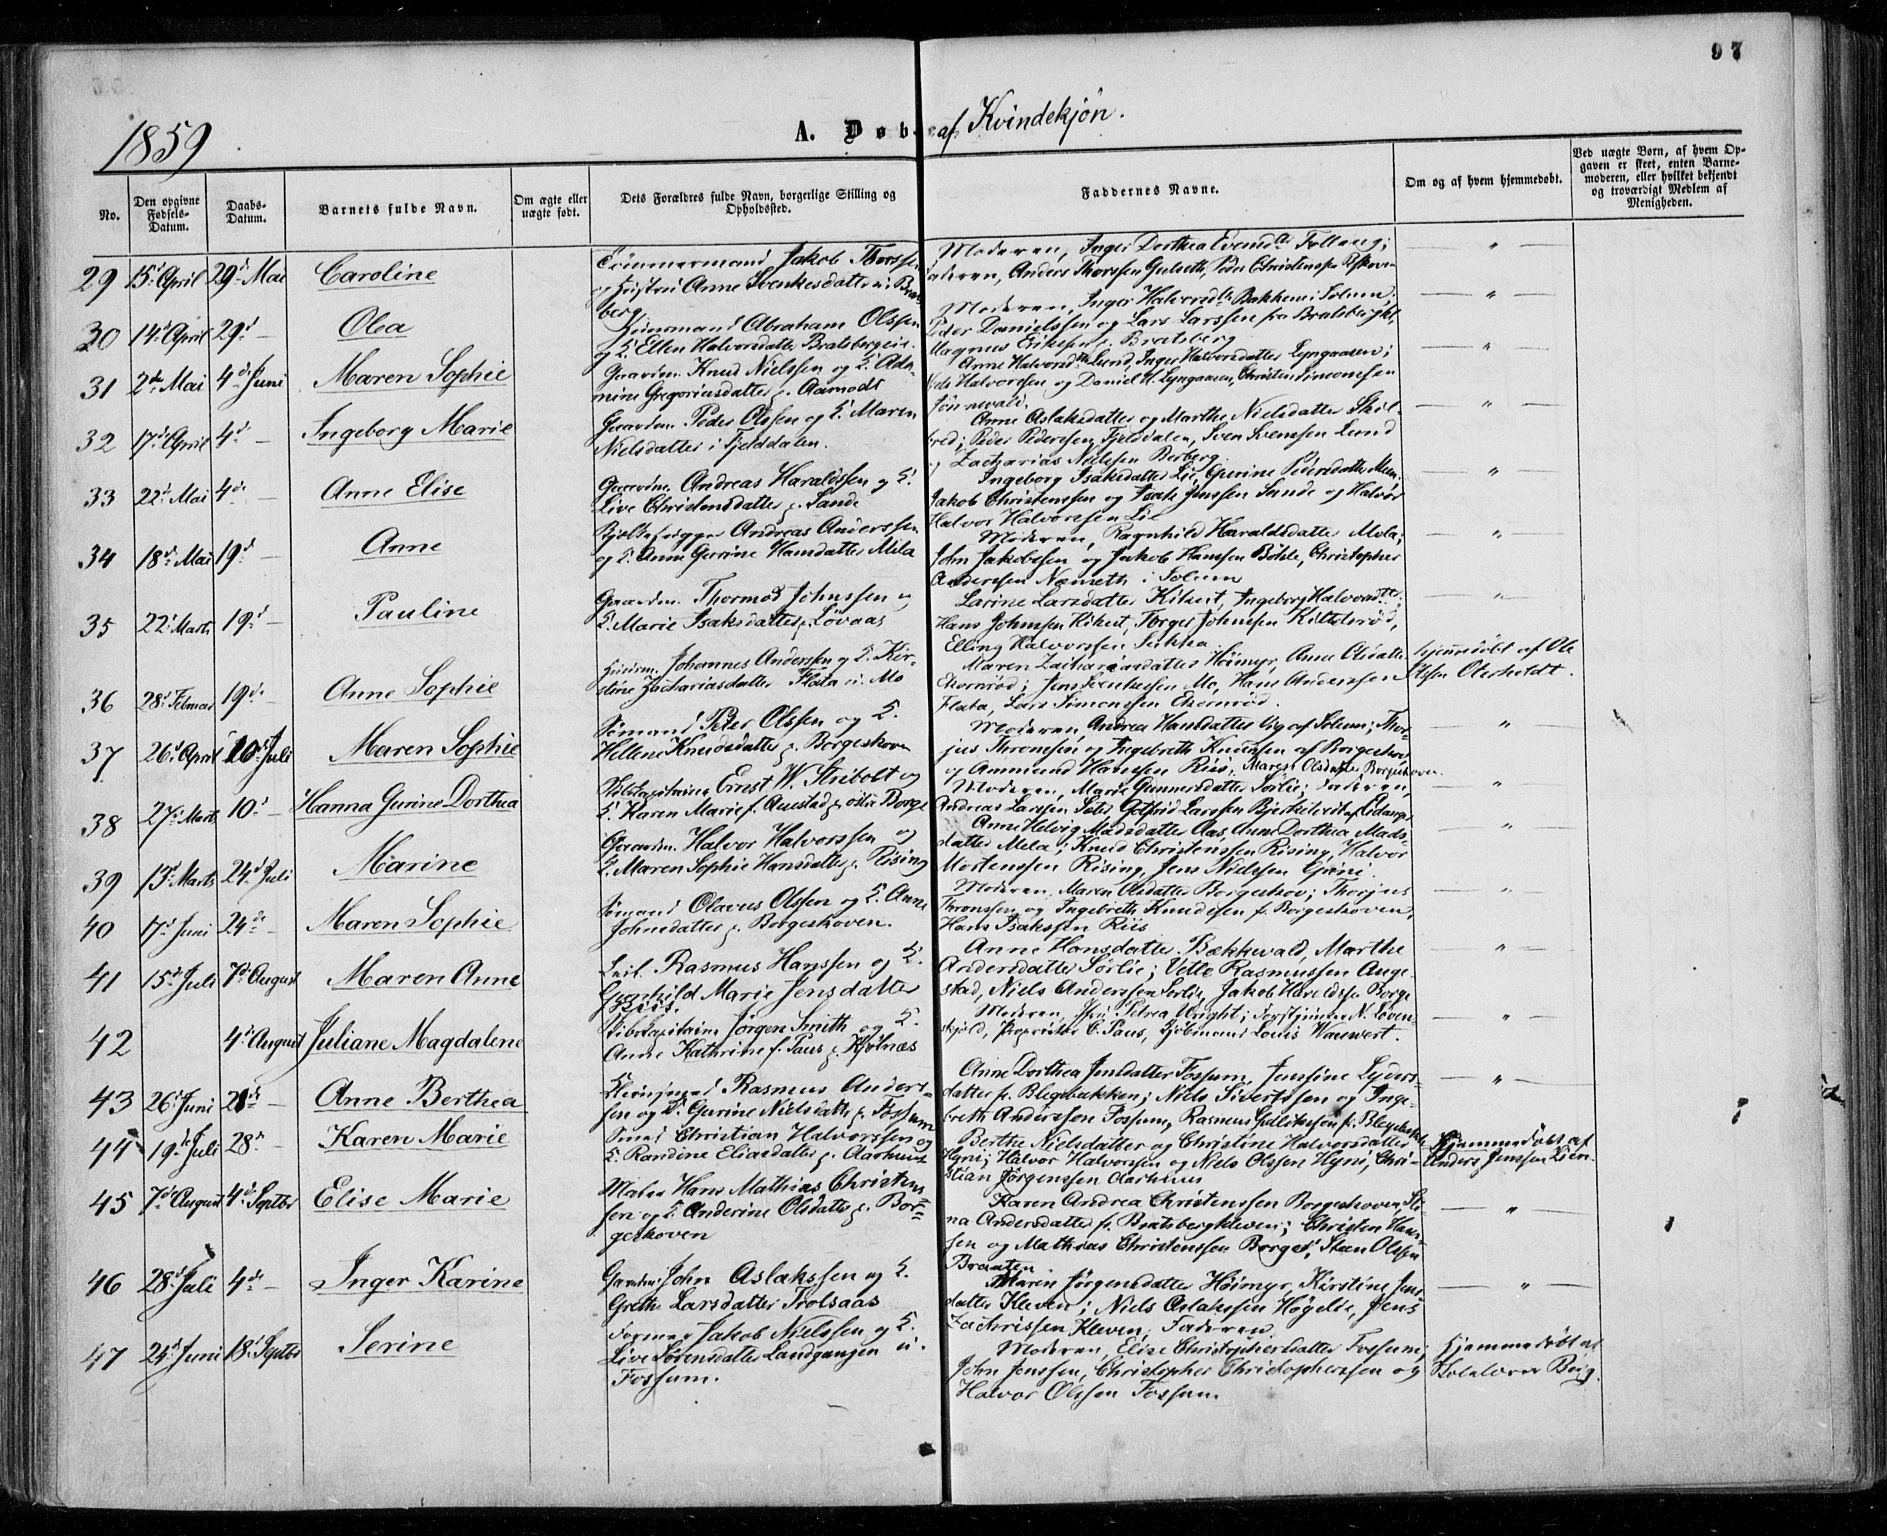 97
1859
A. Døbte af Kvindekjøn.
No.
Den opgivne Fødsels-Datum.
Daabs-Datum.
Barnets fulde Navn.
Om ægte eller uægte født.
Dets Forældres fulde Navn, borgerlige Stilling og Opholdssted.
Faddernes Navne.
Om og af hvem hjemmedøbt.
Ved uægte Børn, af hvem Opgaven er skeet, enten Barnemoderen, eller hvilket bekjendt og troværdigt Medlem af Menigheden.
29 15d April 29d Mai Caroline
Tømmermand Jakob Thorssen
og Hustru Anne Svenkesdatter u. Bratsberg
Moderen, Inger Dorthea Evensdtr Follaug;
Faderen, Anders Thorssen Gulseth, Peder Christenssen
30 14d April 29d — Olea
Huusmand Abraham Olssen
og H. Ellen Halvorsdatter Bratsbergeie.
Moderen, Inger Halvorsdtr Bakken i Solum;
Peder Danielssen og Lars Larssen fra Bratsbergkl,
Magnus Erikssen f. Bratsberg
31 2d Mai 4d Juni Maren Sophie
Gaardm. Knud Nielssen og H. Adamine Gregoriusdatter f. Aamodt
Anne Halvorsdtr Lund, Inger Halvorsdatter Lyngaasen;
Nils Halvorssen og Daniel H. Lyngaasen, Christen Simonssen
32 17d April 4d — Ingeborg Marie
Gaardm. Peder Olssen og H. Maren
Nielsdatter i Fjelddalen.
Anne Aslaksdatter og Marthe Nielsdatter Skilbred; Peder Pederssen Fjelddalen, Sven Svenssen Lund
og Zacharias Nielssen Berberg
33 22d Mai 4de — Anne Elise
Gaardm. Andreas Haraldssen og H.
Live Christensdatter f. Sande
Ingeborg Isaksdatter Lie, Gurine Pedersdatter Meen.
Jakob Christenssen og Isak Jenssen Sande og Halvor
Halvor Halvorssen Lie
34 18d Mai 19d — Anne
Bjelkehugger Andreas Anderssen
og H. Anne Gurine Hansdatter Mila
Moderen, Ragnhild Haraldsdatter Mela;
John Jakobssen og Jakob Hanssen Bøhle, Christopher
Anderssen Næseth i Solum
35 22d Marts 19d — Pauline
Gaardm. Thormod Johnssen og
H. Marie Isaksdatter f. Løvaas
Larine Larsdatter Kikut, Ingeborg Halvorsdtr
Hans Johnssen Kikut, Torger Johnssen Kittilsrød,
Elling Halvorssen
36 28d Februar 19de — Anne Sophie
Huusm. Johannes Anderssen og H. Kirstine Zachariasdatter Flata u. Mo
Maren Zachariasdatter Høimyr, Anne Olsdatter
Ekornrød; Jens Svenkessen Mo, Hans Anderssen
Flata, Lars Simonssen Ekornrød.
Hjemmedøbt af Ole
Olssen Oterholdt.
37 26d April 10de Juli Maren Sophie
Sømand Peter Olssen og H.
Hellene Knudsdatter f. Borgeshoven
Moderen, Andrea Hansdatter Lig af Solum; Thorjus Thronssen og Ingebreth Knudssen af Borgeshov
og Ammund Hanssen Riis, Maren Olsdatter Borgeshoven.
38 27d Marts 10d — Hanna Gurine Dorthea
Skibskapitain Ernst W. Stribolt og
H. Karen Marie f. Auestad f. østre Borge
Moderen, Marie Gunnersdatter Sørlie; Faderen,
Andreas Larssen Sæter, Gotfred Larssen Bjerketvedt af Eidanger
39 13d Marts 24d Juli Marine
Gaardm. Halvor Halvorssen og
H. Maren Sophie Hansdatter f. Rising
Anne Helvig Madsdatter Aas, Anne Dorthea Madsdatter Mela; Knud Christenssen Rising, Halvor
Mortenssen Rising, Jens Nielssen Grini
40 17d Juni 24de — Maren Sophie
Sømand Olavus Olssen og H. Anne
Johnsdatter f. Borgeshoven.
Moderen, Maren Olsdatter Borgeshov; Thorjus
Thronssen og Ingebreth Knudssen f. Borgeshoven,
Hans Isakssen Riis
41 15d Juli 7d August Maren Anne
Rasmus Hanssen og H.
Gunhild Marie Jensdatter
Riis.
Anne Hansdatter Bækkevold, Marthe
Andersdatter Sørlie; Vetle Rasmussen Augestad, Niels Anderssen Sørlie, Jakob Haraldssen Borge
42 4d August Juliane Magdalene
Skibskapitain Jørgen Smith og H.
Anne Kathrine f. Paus f. Kjølnæs
Moderen, Petrea Wright; Forstjunker N. Løvenskjold, Proprietær C. Paus, Kjøbmand Louis Wauwert.
43 26d Juni 21de — Anne Berthea
Rasmus Anderssen og H. Gurine Nielsdatter f. Fossum
Anne Dorthea Jensdatter Fossum, Jenssine Lydersdatter fr. Blegebakken; Niels Sivertssen og Ingebreth Anderssen Fossum, Rasmus fr. Blegebakk
44 19de Juli 28de Karen Marie
Smed Christian Halvorssen og
H. Randine Eliasdatter f. Aarhuus
Berthe Nielsdatter og Christine Halvorsdatter
Hyni; Halvor Halvorssen og Niels Olssen Hyni, Christian Jørgenssen Aarhuus
Hjemmedøbt af
Anders Jenssen Lien.
45 7de August 4d Septbr Elise Marie
Maler Hans Mathias Christenssen og H. Anderine Olsdatter f. Borgeshoven
Karen Andrea Christenssen Borgeshoven, Stina Andersdatter fr. Bratsbergkleven; Christen Hanssen og Mathias Christenssen Borges, Steen Olssen
Braaten
46 28d Juli 4de — Inger Karine
Gaardm. John Aslakssen og H.
Grethe Larsdatter Trolsaas
Maren Jørgensdatter Høimyr, Kirstine Jensdatter Kleven; Niels Aslakssen Høgelie, Jens
Zachrissen Kleven, Faderen.
47 24d Juni 18d Septbr Serine
Former Jakob Nielssen og H.
Live Sørensdatter Landgangen u.
Fossum.
Moderen, Elise Christophersdatter Fossum;
John Jenssen, Christopher Christopherssen og
Halvor Olssen Fossum.
Hjemmedøbt af
Skolelærer Berg.